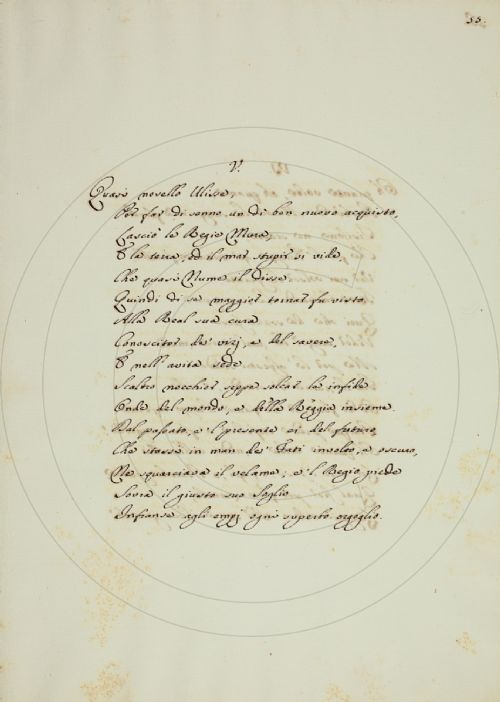 55.
V.
Quasi novello Ulisse
Per far di senno un dì ben nuovo acquisto,
Lasciò le Regie Mura
E la terra, ed il mar stupir si vide,
Che quasi Nume il disse.
Quindi di se maggior tornar fu visto
Alla Real sua cura
Conoscitor de' vizj, e del savere,
E nell' avita sede
Scaltro nocchier seppe solcar le infide
Onde del mondo, e della Reggia insieme.
Dal passato, e 'l presente ei del futuro,
Che stasse in man de' Fati involto, e oscuro,
Ne squarciava il velame, e 'l Regio piede
Sovra il giusto suo Soglio
Infranse agli empj ogni superbo orgoglio.